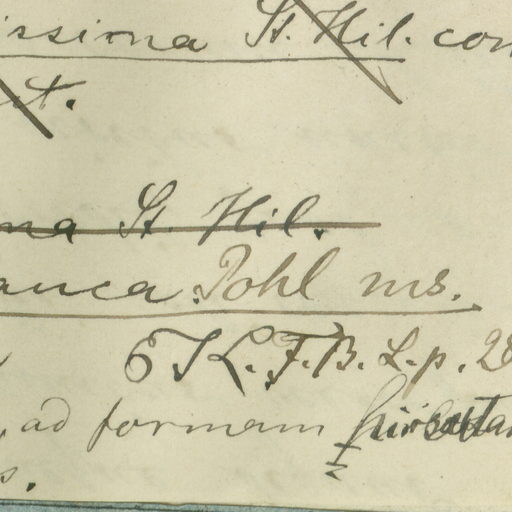 issima St. Hil. con
st.
na St. Hil.
auca Pohl ms.
F.B. L.p. 28
, ad formam hirsutam
s.